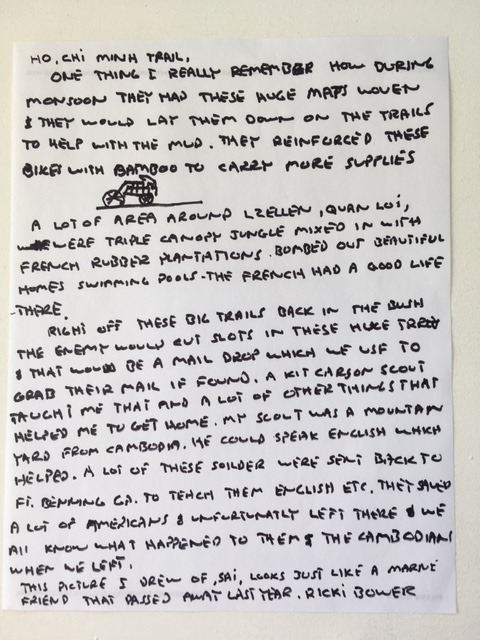 HO, CHI MINH TRAIL,
ONE THING I REALLY REMEMBER HOW DURING
MONSOON THEY HAD THESE HUGE MATS WOVEN
& THEY WOULD LAY THEM DOWN ON THE TRAILS
TO HELP WITH THE MUD. THEY REINFORCED THESE
BIKES WITH BAMBOO TO CARRY MORE SUPPLIES
A LOT OF AREA AROUND LZELLEN, QUAN LOI,
WERE TRIPLE CANOPY JUNGLE MIXED IN WITH
FRENCH RUBBER PLANTATIONS. BOMBED OUT BEAUTIFUL
HOMES SWIMMING POOLS - THE FRENCH HAD A GOOD LIFE
- THERE.
RIGHT OFF THESE BIG TRAILS BACK IN THE BUSH
THE ENEMY WOULD CUT SLOTS IN THESE HUGE TREES
& THAT WOULD BE A MAIL DROP WHICH WE USE TO
GRAB THEIR MAIL IF FOUND. A KIT CARSON SCOUT
TAUGHT ME THAT AND A LOT OF OTHER THINGS THAT
HELPED ME TO GET HOME. MY SCOUT WAS A MOUNTAIN
YARD FROM CAMBODIA. HE COULD SPEAK ENGLISH WHICH
HELPED. A LOT OF THESE SOILDER WERE SENT BACK TO
FT. BENNING GA. TO TEACH THEM ENGLISH ETC. THEY SAVED
A LOT OF AMERICANS & UNFORTUNATLY LEFT THERE & WE
All KNOW WHAT HAPPENED TO THEM & THE CAMBODIANS
WHEN WE LEFT.
THIS PICTURE I DREW OF, SAI, LOOKS JUST LIKE A MARNE
FRIEND THAT PASSED AWAY LAST YEAR. RICKI BOWER